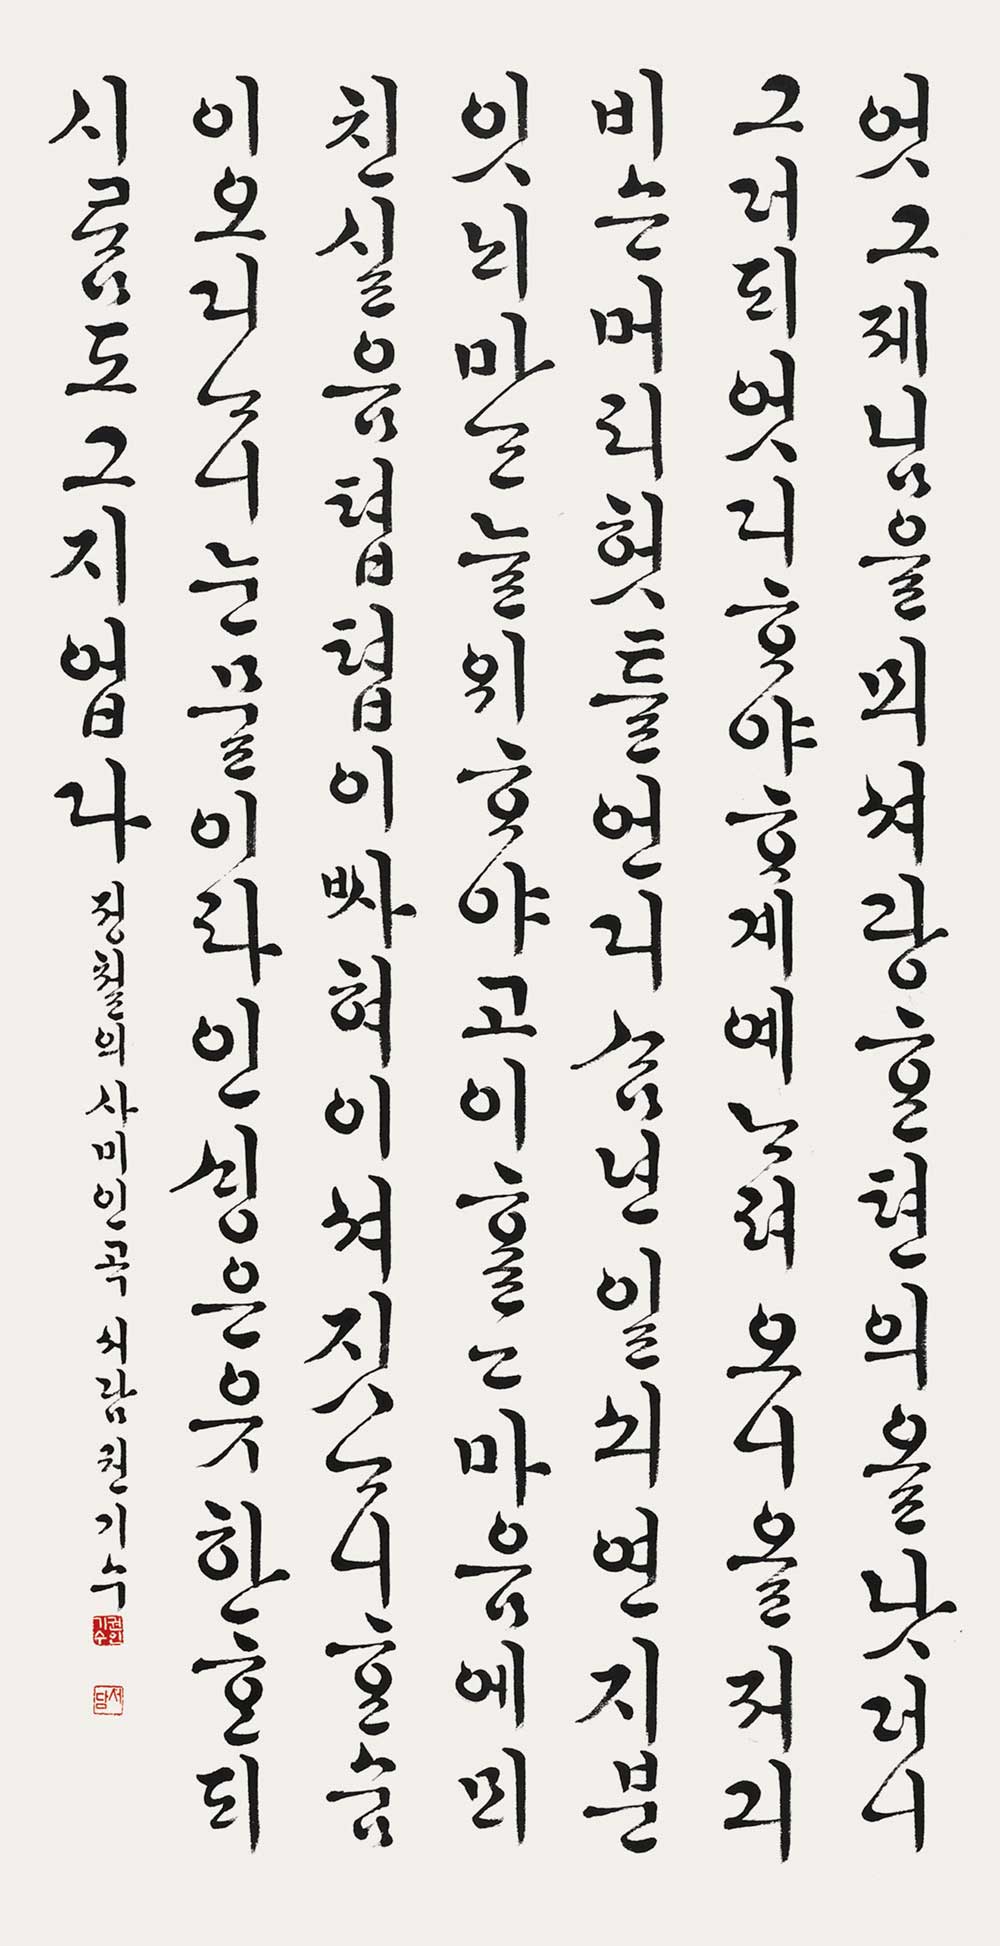 엇그제님을뫼셔광ᄒᆞᆫ뎐의올낫더니
그더되엇디ᄒᆞ야ᄒᆞ계예ᄂᆞ려오니올저긔
비슨머리헛틀언디ᄉᆞᆷ년일쇠연지분
잇뇌마ᄂᆞᆫ눌위ᄒᆞ야고이ᄒᆞᆯ고마음에ᄆᆡ
친실음텹텹이ᄡᅡ혀이셔짓ᄂᆞ니ᄒᆞᆫ숨
이오디ᄂᆞ니눈믈이라인ᄉᆡᆼ은유한ᄒᆞᆫ되
시름도그지업다 정철의 사미인곡 서담 권기수
권기수
서담